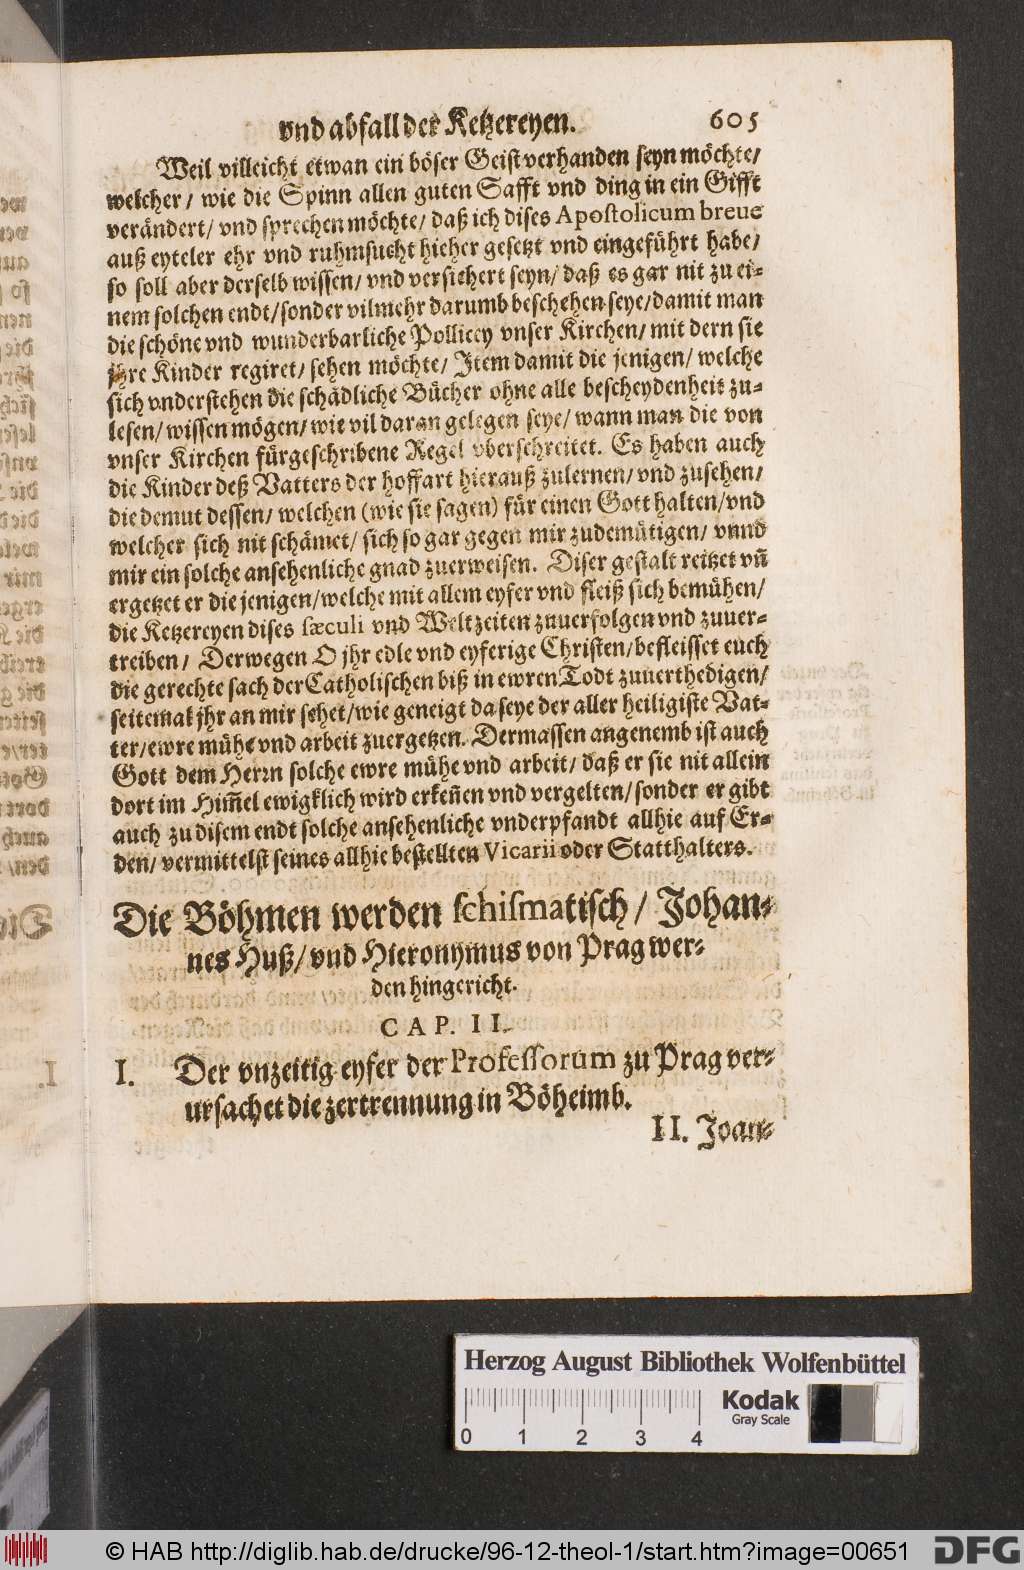 vnd abfall der Ketzereyen. 605
Weil villeicht etwan ein böser Geist verhanden seyn möchte/
welcher/ wie die Spinn allen guten Safft vnd ding in ein Gifft
verändert/ vnd sprechen möchte/ daß ich dises Apostolicum breue
auß eyteler ehr vnd ruhmsucht hieher gesetzt vnd eingeführt habe/
so soll aber derselb wissen/ vnd versichert seyn/ daß es gar nit zu ei-
nem solchen endt/ sonder vilmehr darumb beschehen seye/ damit man
die schöne vnd wunderbarliche Pollicey vnser Kirchen/ mit dern sie
jhre Kinder regiret/ sehen möchte/ Item damit die jenigen/ welche
sich vnderstehen die schädliche Bücher ohne alle bescheydenheit zu-
lesen/ wissen mögen/ wie vil daran gelegen seye/ wann man die von
vnser Kirchen fürgeschribene Regel vberschreitet. Es haben auch
die Kinder deß Vatters der hoffart hierauß zulernen/ vnd zusehen/
die demut dessen/ welchen (wie sie sagen) für einen Gott halten/ vnd
welcher sich nit schämet/ sich so gar gegen mir zudemütigen/ vnnd
mir ein solche ansehenliche gnad zuerweisen. Diser gestalt reitzet vn̄
ergetzet er die jenigen/ welche mit allem eyfer vnd fleiß sich bemühen/
die Ketzereyen dises sæculi vnd Weltzeiten zuuerfolgen vnd zuuer-
treiben/ Derwegen O jhr edle vnd eyferige Christen/ befleisset euch
die gerechte sach der Catholischen biß in ewren Todt zuuerthedigen/
seitemal jhr an mir sehet/ wie geneigt da seye der aller heiligiste Vat-
ter/ ewre mühe vnd arbeit zuergetzen. Dermassen angenemb ist auch
Gott dem Herrn solche ewre mühe vnd arbeit/ daß er sie nit allein
dort im Him̄el ewigklich wird erken̄en vnd vergelten/ sonder er gibt
auch zu disem endt solche ansehenliche vnderpfandt allhie auf Er-
den/ vermittelst seines allhie bestellten Vicarii oder Statthalters.
Die Böhmen werden schismatisch/ Johan-
nes Huß/ vnd Hieronymus von Prag wer-
den hingericht.
CAP. II.
I. Der vnzeitig eyfer der Professorum zu Prag ver-
ursachet die zertrennung in Böheimb.
II. Joan-
Herzog August Bibliothek Wolfenbüttel
0 1 2 3 4
Kodak
Gray Scale
© HAB http://diglib.hab.de/drucke/96-12-theol-1/start.htm?image=00651
DFG